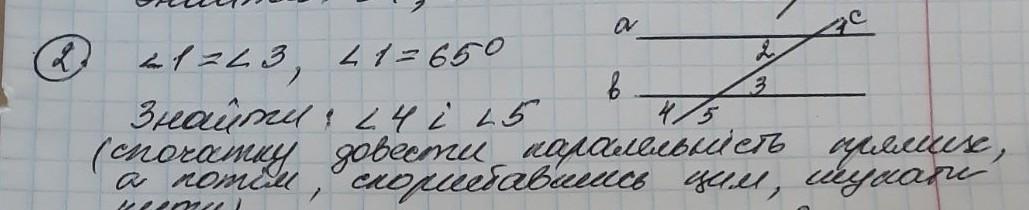 2) ∠1=∠3, ∠1=65°
Знайти: ∠4 і ∠5
(спочатку довести паралельність прямих,
а потім, скориставшись цим, шукати
a
c
1
2
b
3
4
5